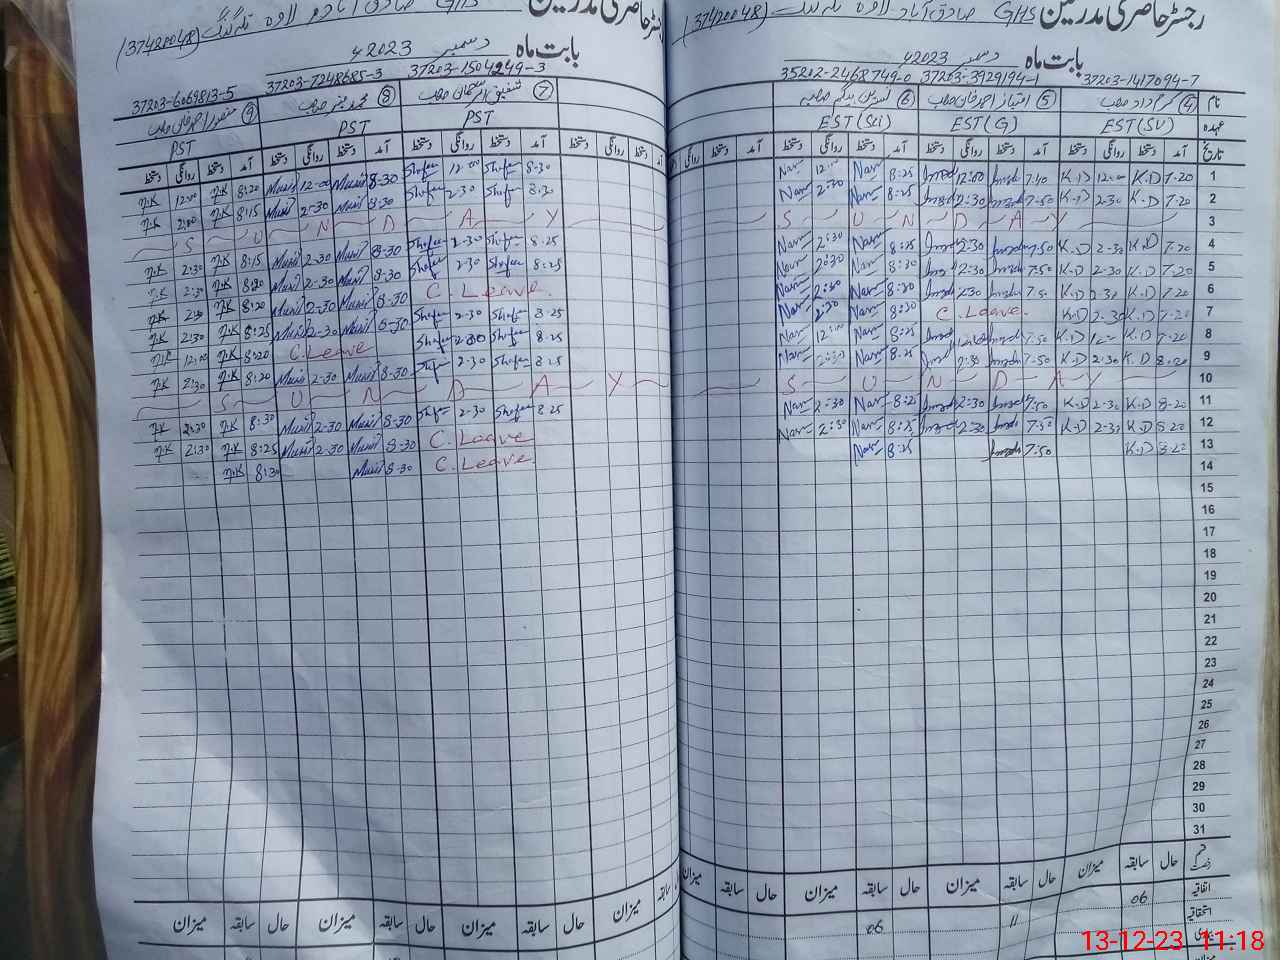 رجسٹر حاضری مدرسین GHS صادق آباد لاوہ تلہ گنگ (37420048)
بابت ماہ دسمبر 2023ء
37203-1417094-7 37203-3929194-1 35202-2468749-0
نام ④ کرم داد صاحب ⑤ امتیاز احمد خان صاحب ⑥ نسرین بیگم صاحبہ
عہدہ EST(SV) EST(G) EST(Sci)
تاریخ آمد دستخط روانگی دستخط آمد دستخط روانگی دستخط آمد دستخط روانگی دستخط آمد دستخط
1 7-20 K.D 12-00 K.D 7-40 12:00 8-25 Nas 12:00 Nas
2 7-20 K.D 2-30 K.D 7-50 2:30 8-25 Nas 2:30 Nas
3 S U N D A Y
4 7-20 K.D 2-30 K.D 7-50 2:30 8:25 Nas 2:30 Nas
5 7-20 K.D 2-30 K.D 7-50 2:30 8:30 Nas 2:30 Nas
6 7-20 K.D 2-30 K.D 7-50 2:30 8:20 Nas 2:30 Nas
7 7-20 K.D 2-30 K.D C. Leave. 8:20 Nas 2:30 Nas
8 7-20 K.D 12- K.D 7-50 8:25 Nas 12:00 Nas
9 8-20 K.D 2-30 K.D 7-50 2:30 8:25 Nas 2:30 Nas
10 S U N D A Y
11 8-20 K.D 2-30 K.D 7-50 2:30 8:25 Nas 2:30 Nas
12 8-20 K.D 2-30 K.D 7-50 2:30 8:25 Nas 2:30 Nas
13 8-20 K.D 7-50 8:25 Nas
14
15
16
17
18
19
20
21
22
23
24
25
26
27
28
29
30
31
حال سابقہ میزان حال سابقہ میزان حال سابقہ میزان حال سابقہ میزان
اتفاقیہ 06
استحقاقیہ 11 06
میزان
رجسٹر حاضری مدرسین GHS صادق آباد لاوہ تلہ گنگ (37420048)
بابت ماہ دسمبر 2023ء
37203-1504249-3 37203-7248685-3 37203-6069813-5
⑦ شفیق الرحمان صاحب ⑧ محمد منیر صاحب ⑨ منصور احمد خان صاحب
PST PST PST
دستخط روانگی دستخط آمد دستخط روانگی دستخط آمد دستخط روانگی دستخط آمد دستخط روانگی دستخط
8-30 Shafee 12-00 Shafee 8-30 Munir 12-00 Munir 8:20 M.K 12:00 M.K
8-30 Shafee 2-30 Shafee 8-30 Munir 2-30 Munir 8:15 M.K 2:00 M.K
S U N D A Y
8-25 Shafee 2-30 Shafee 8-30 Munir 2-30 Munir 8:15 M.K 2:30 M.K
8-25 Shafee 2-30 Shafee 8-30 Munir 2-30 Munir 8:20 M.K 2:30 M.K
C. Leave. 8-30 Munir 2-30 Munir 8:20 M.K 2:30 M.K
8-25 Shafee 2-30 Shafee 8-30 Munir 2-30 Munir 8:25 M.K 2:30 M.K
8-25 Shafee Shafee C. Leave 8:20 M.K 12:00 M.K
8-25 Shafee 2-30 Shafee 8-30 Munir 2-30 Munir 8:20 M.K 2:30 M.K
S U N D A Y
8-25 Shafee 2-30 Shafee 8-30 Munir 2-30 Munir 8:30 M.K 2:30 M.K
C. Leave 8-30 Munir 2-30 Munir 8:25 M.K 2:30 M.K
C. Leave. 8-30 Munir 8:30 M.K
سابقہ میزان حال سابقہ میزان حال سابقہ میزان حال سابقہ میزان
13-12-23 11:18